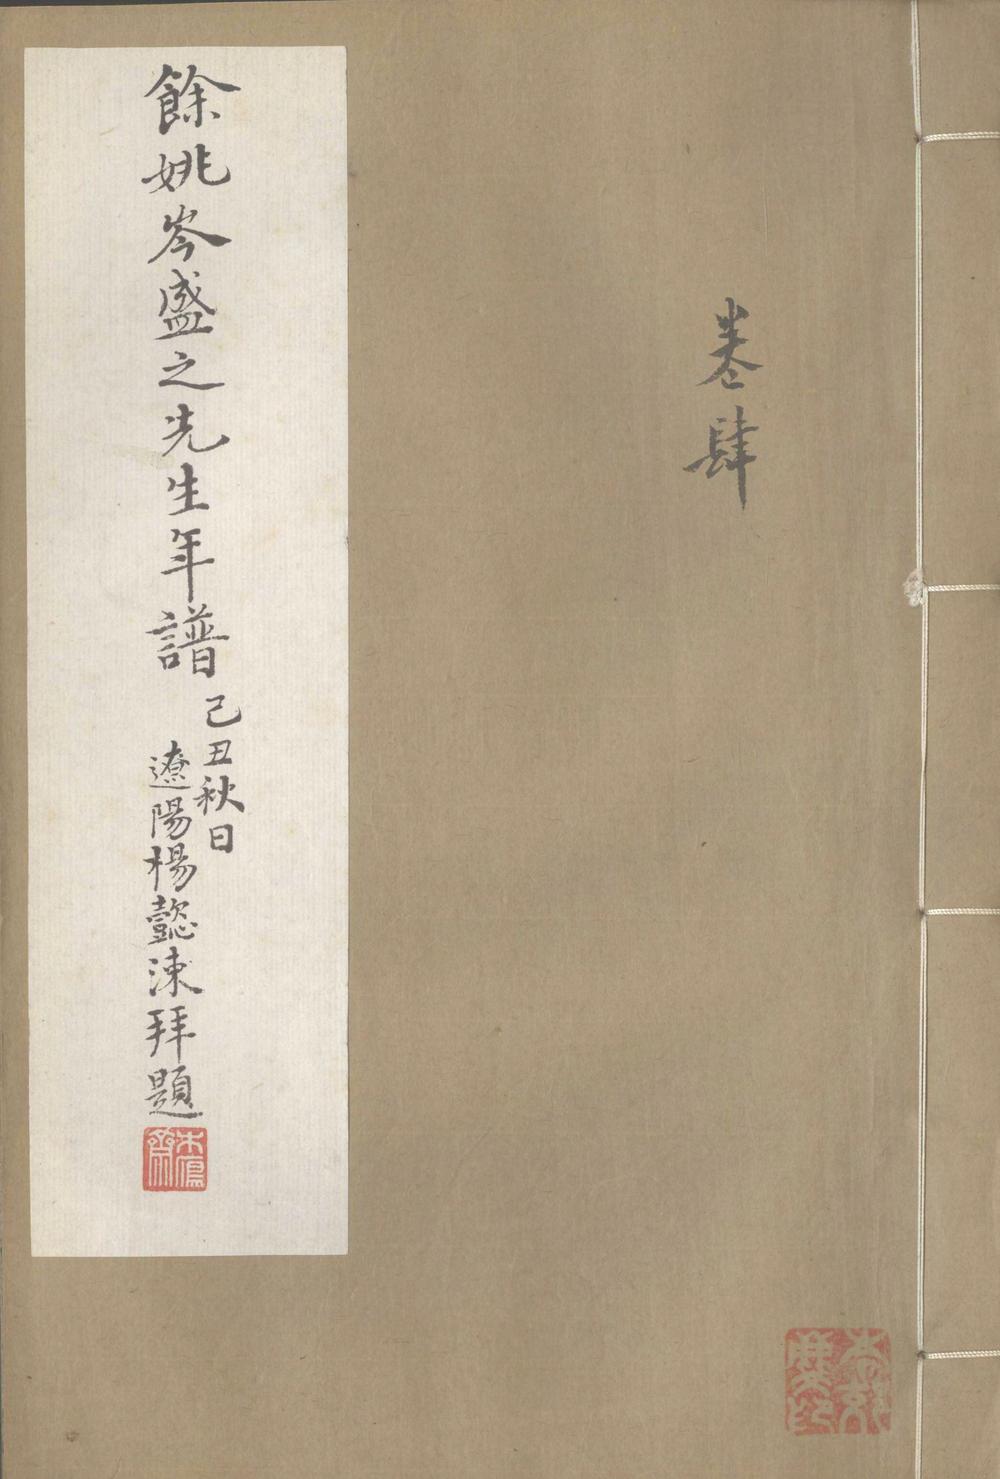 卷肆
餘姚岑盛之先生年譜
己丑秋日
遼陽楊懿涑拜題